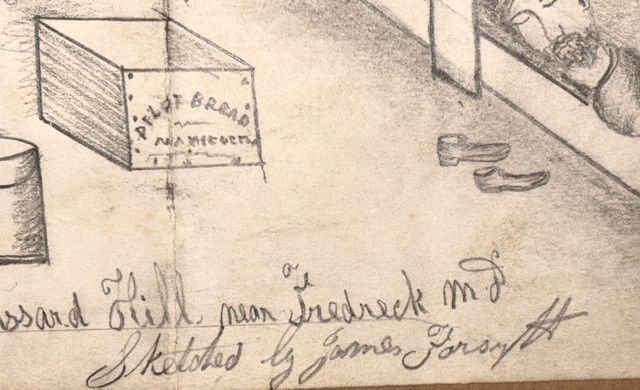 PILOT BREAD
ssard Hill near Fredreck Md
Sketched by James Forsyth